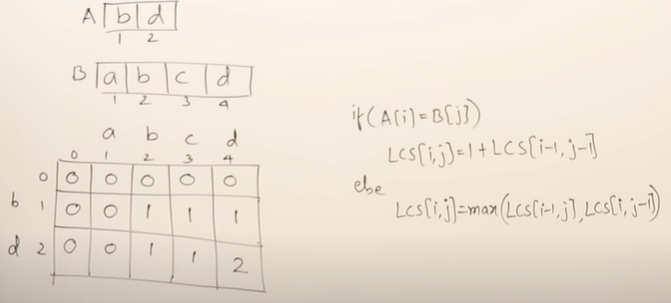 A b d
1 2
B a b c d
1 2 3 4
a b c d
0 1 2 3 4
0 0 0 0 0 0
b 1 0 0 1 1 1
d 2 0 0 1 1 2
if(A[i]=B[j])
LCS[i,j]=1+LCS[i-1,j-1]
else
LCS[i,j]=max(LCS[i-1,j],LCS[i,j-1])